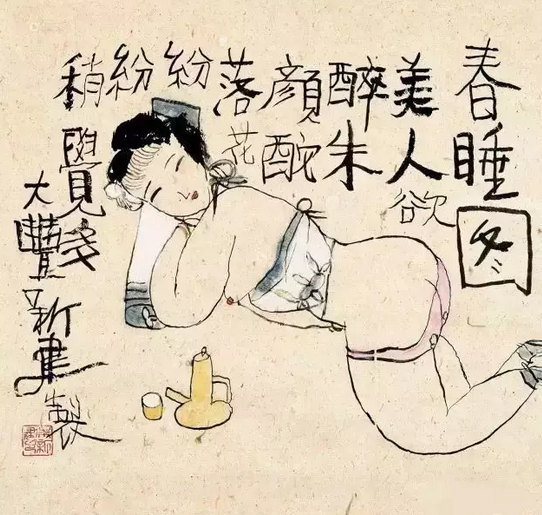 春睡図
美人欲
醉朱
顔酡
落花
紛
紛
稍覺
淺
大豐新建製